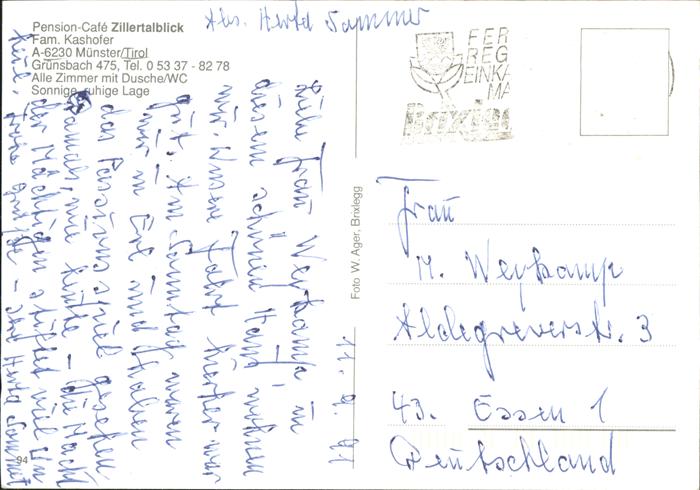 Pension-Café Zillertalblick
Fam. Kashofer
A-6230 Münster/Tirol
Grünsbach 475, Tel. 0 53 37 - 82 78
Alle Zimmer mit Dusche/WC
Sonnige, ruhige Lage
Abs. Herta Sammer
FER
REG
EINKA
MA
Brixlegg
11. 9. 91
Liebe Frau Weykamp, in
diesem schönen Haus wohnen
wir. Unsere Fahrt hierher war
gut. Am Sonntag waren
wir in Erl und haben
das Passionsspiel gesehen.
Damals, wie heute - die Macht
der Mächtigen
grüßt - Ihre Herta Sammer
Foto W. Ager, Brixlegg
94
Frau
M. Weykamp
Aldegreverstr. 3
43. Essen 1
Deutschland